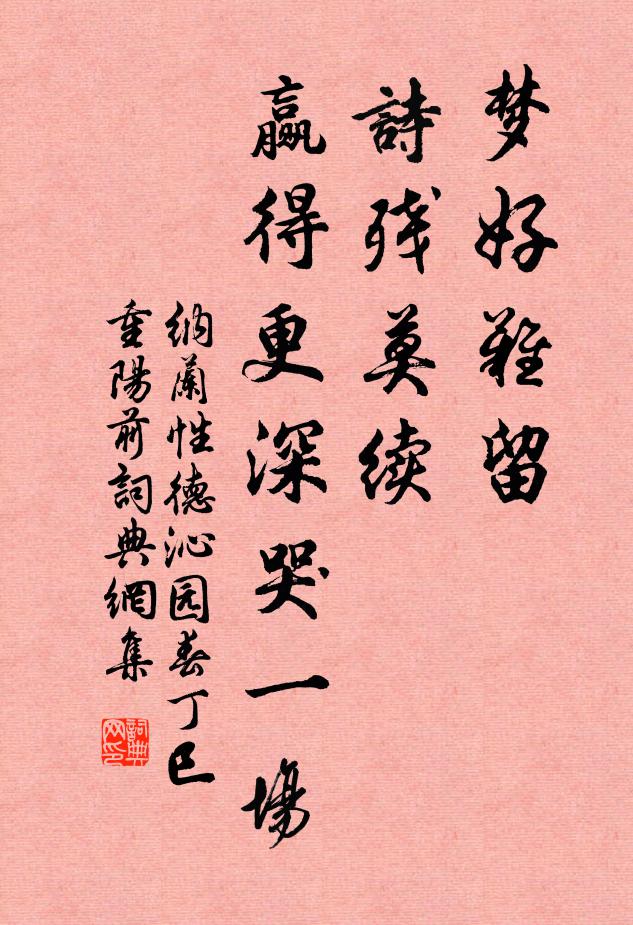 梦好難留
詩残莫续
赢得更深哭一場
纳蘭性德沁园春丁巳
重陽前詞典網集
詞典网印